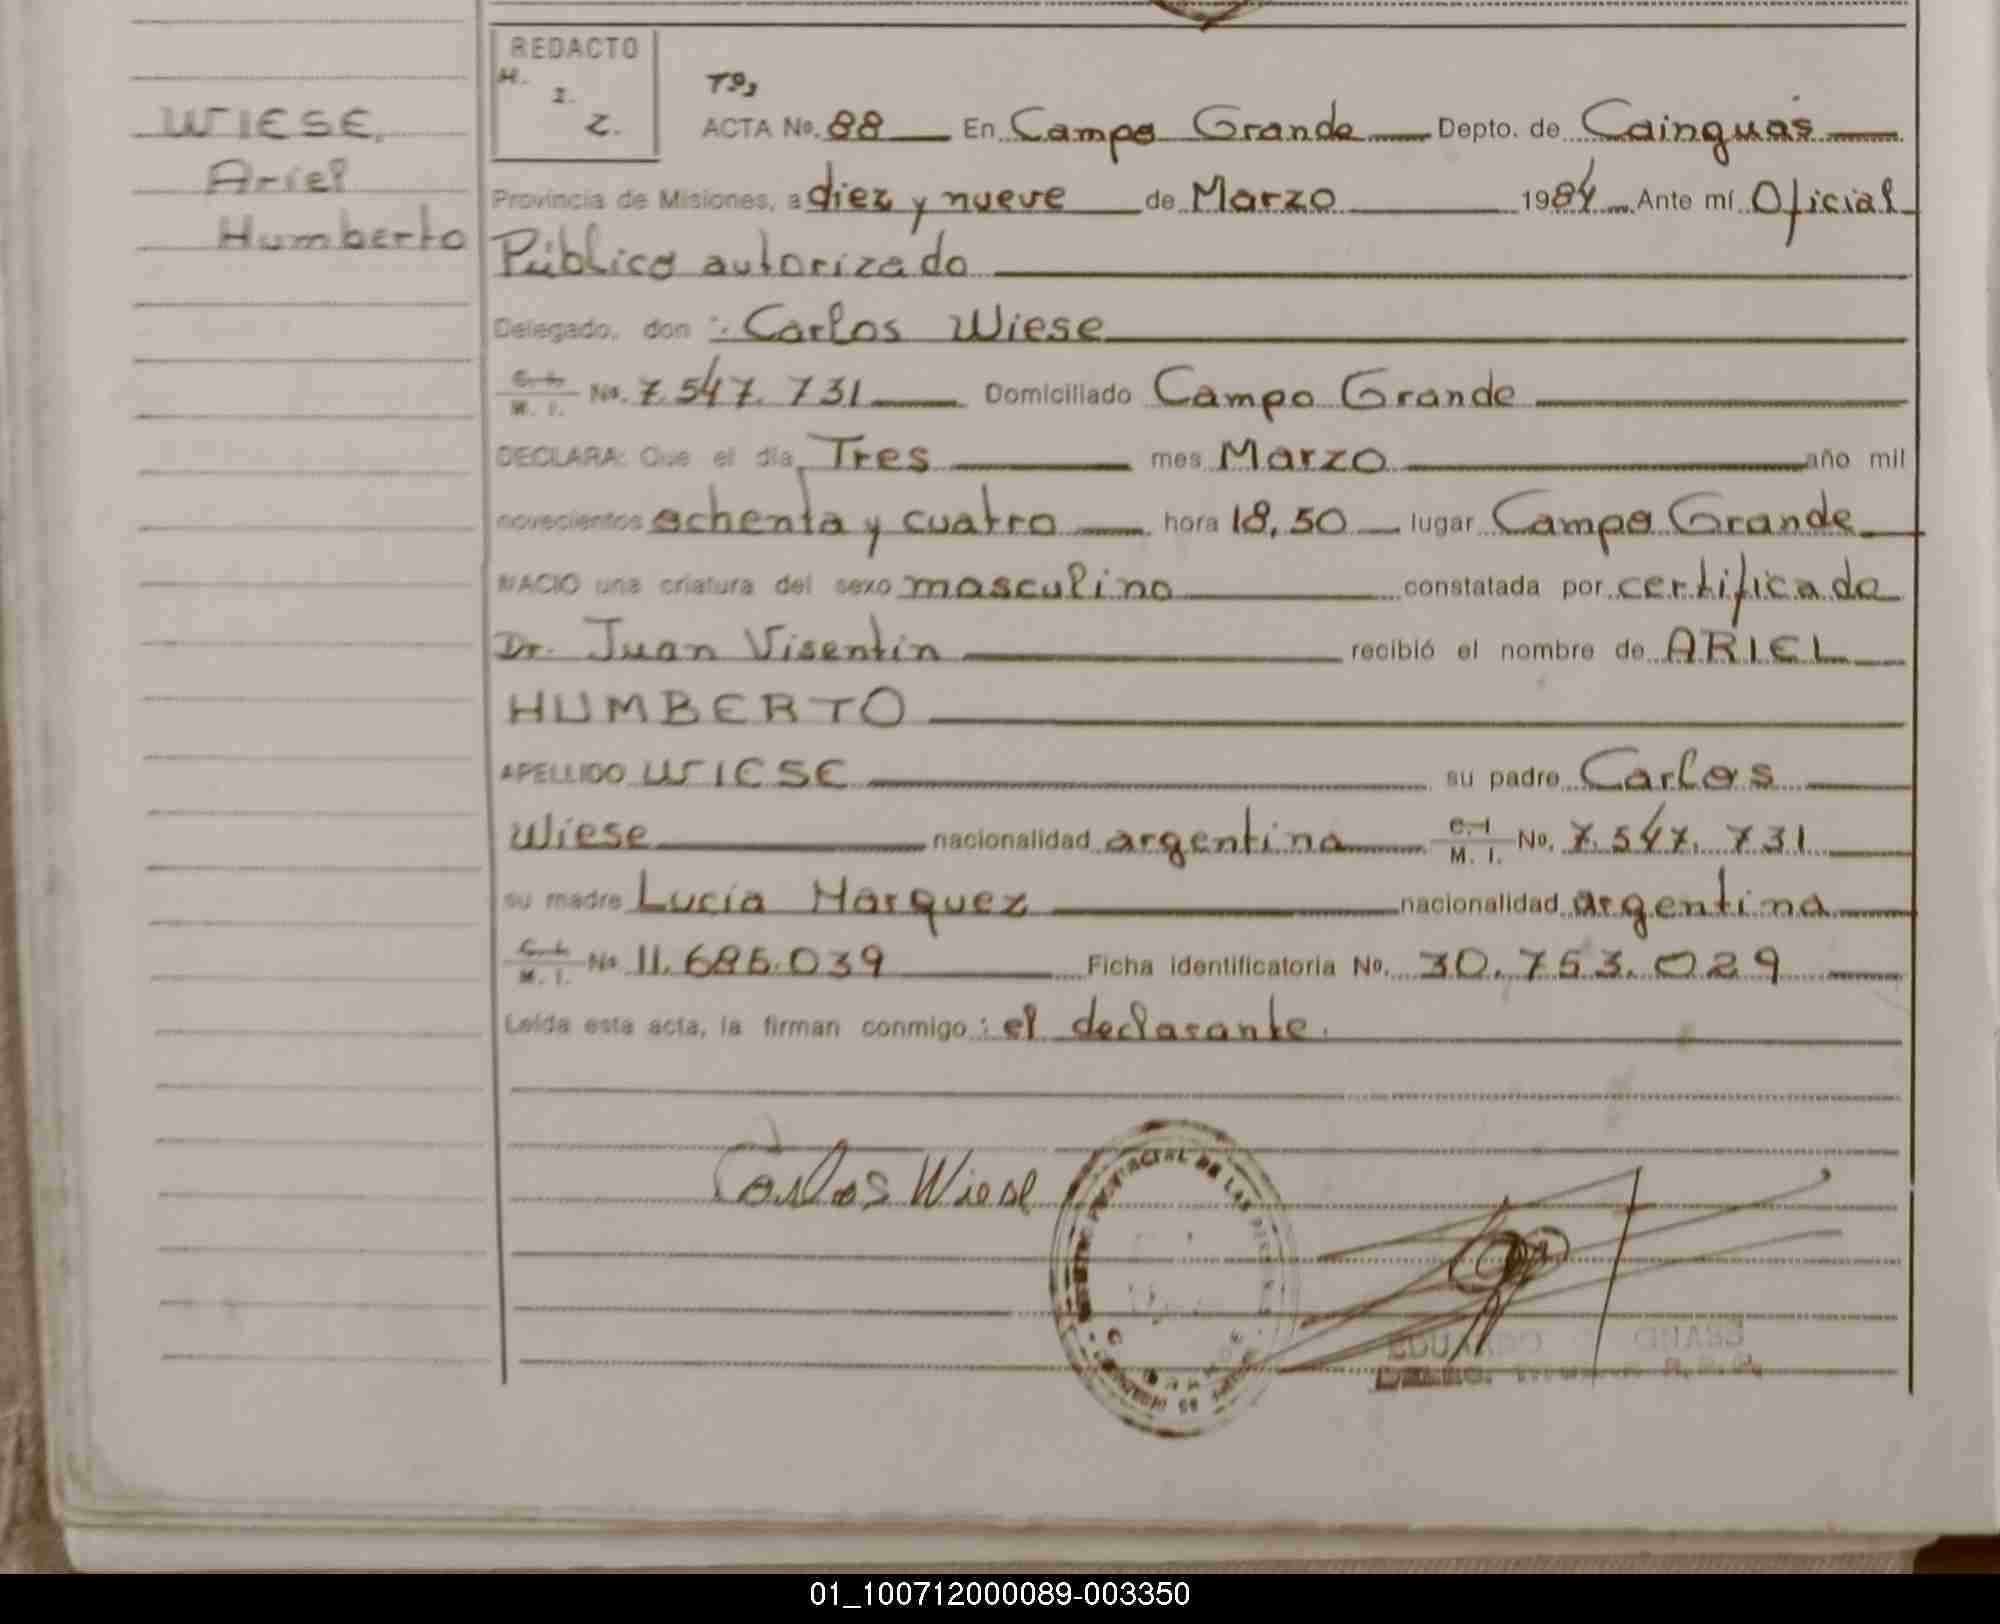 WIESE,
Ariel
Humberto
REDACTO
H.
I.
Z.
T93
ACTA No. 88 En Campo Grande Depto. de Cainguás
Provincia de Misiones, a diez y nueve de Marzo 1984 Ante mí Oficial
Público autorizado
Delegado, don : Carlos Wiese
C. I. M. I. No. 7.547.731 Domiciliado Campo Grande
DECLARA: Que el día Tres mes Marzo año mil
novecientos ochenta y cuatro hora 18,50 lugar Campo Grande
NACIO una criatura del sexo masculino constatada por certificado
Dr. Juan Visentin recibió el nombre de ARIEL
HUMBERTO
APELLIDO WIESE su padre Carlos
Wiese nacionalidad argentina C. I. M. I. No. 7.547.731
su madre Lucía Marquez nacionalidad argentina
C. I. M. I. No 11.686.039 Ficha identificatoria No. 30.753.029
Leída esta acta, la firman conmigo : el declarante.
Carlos Wiese
01_100712000089-003350